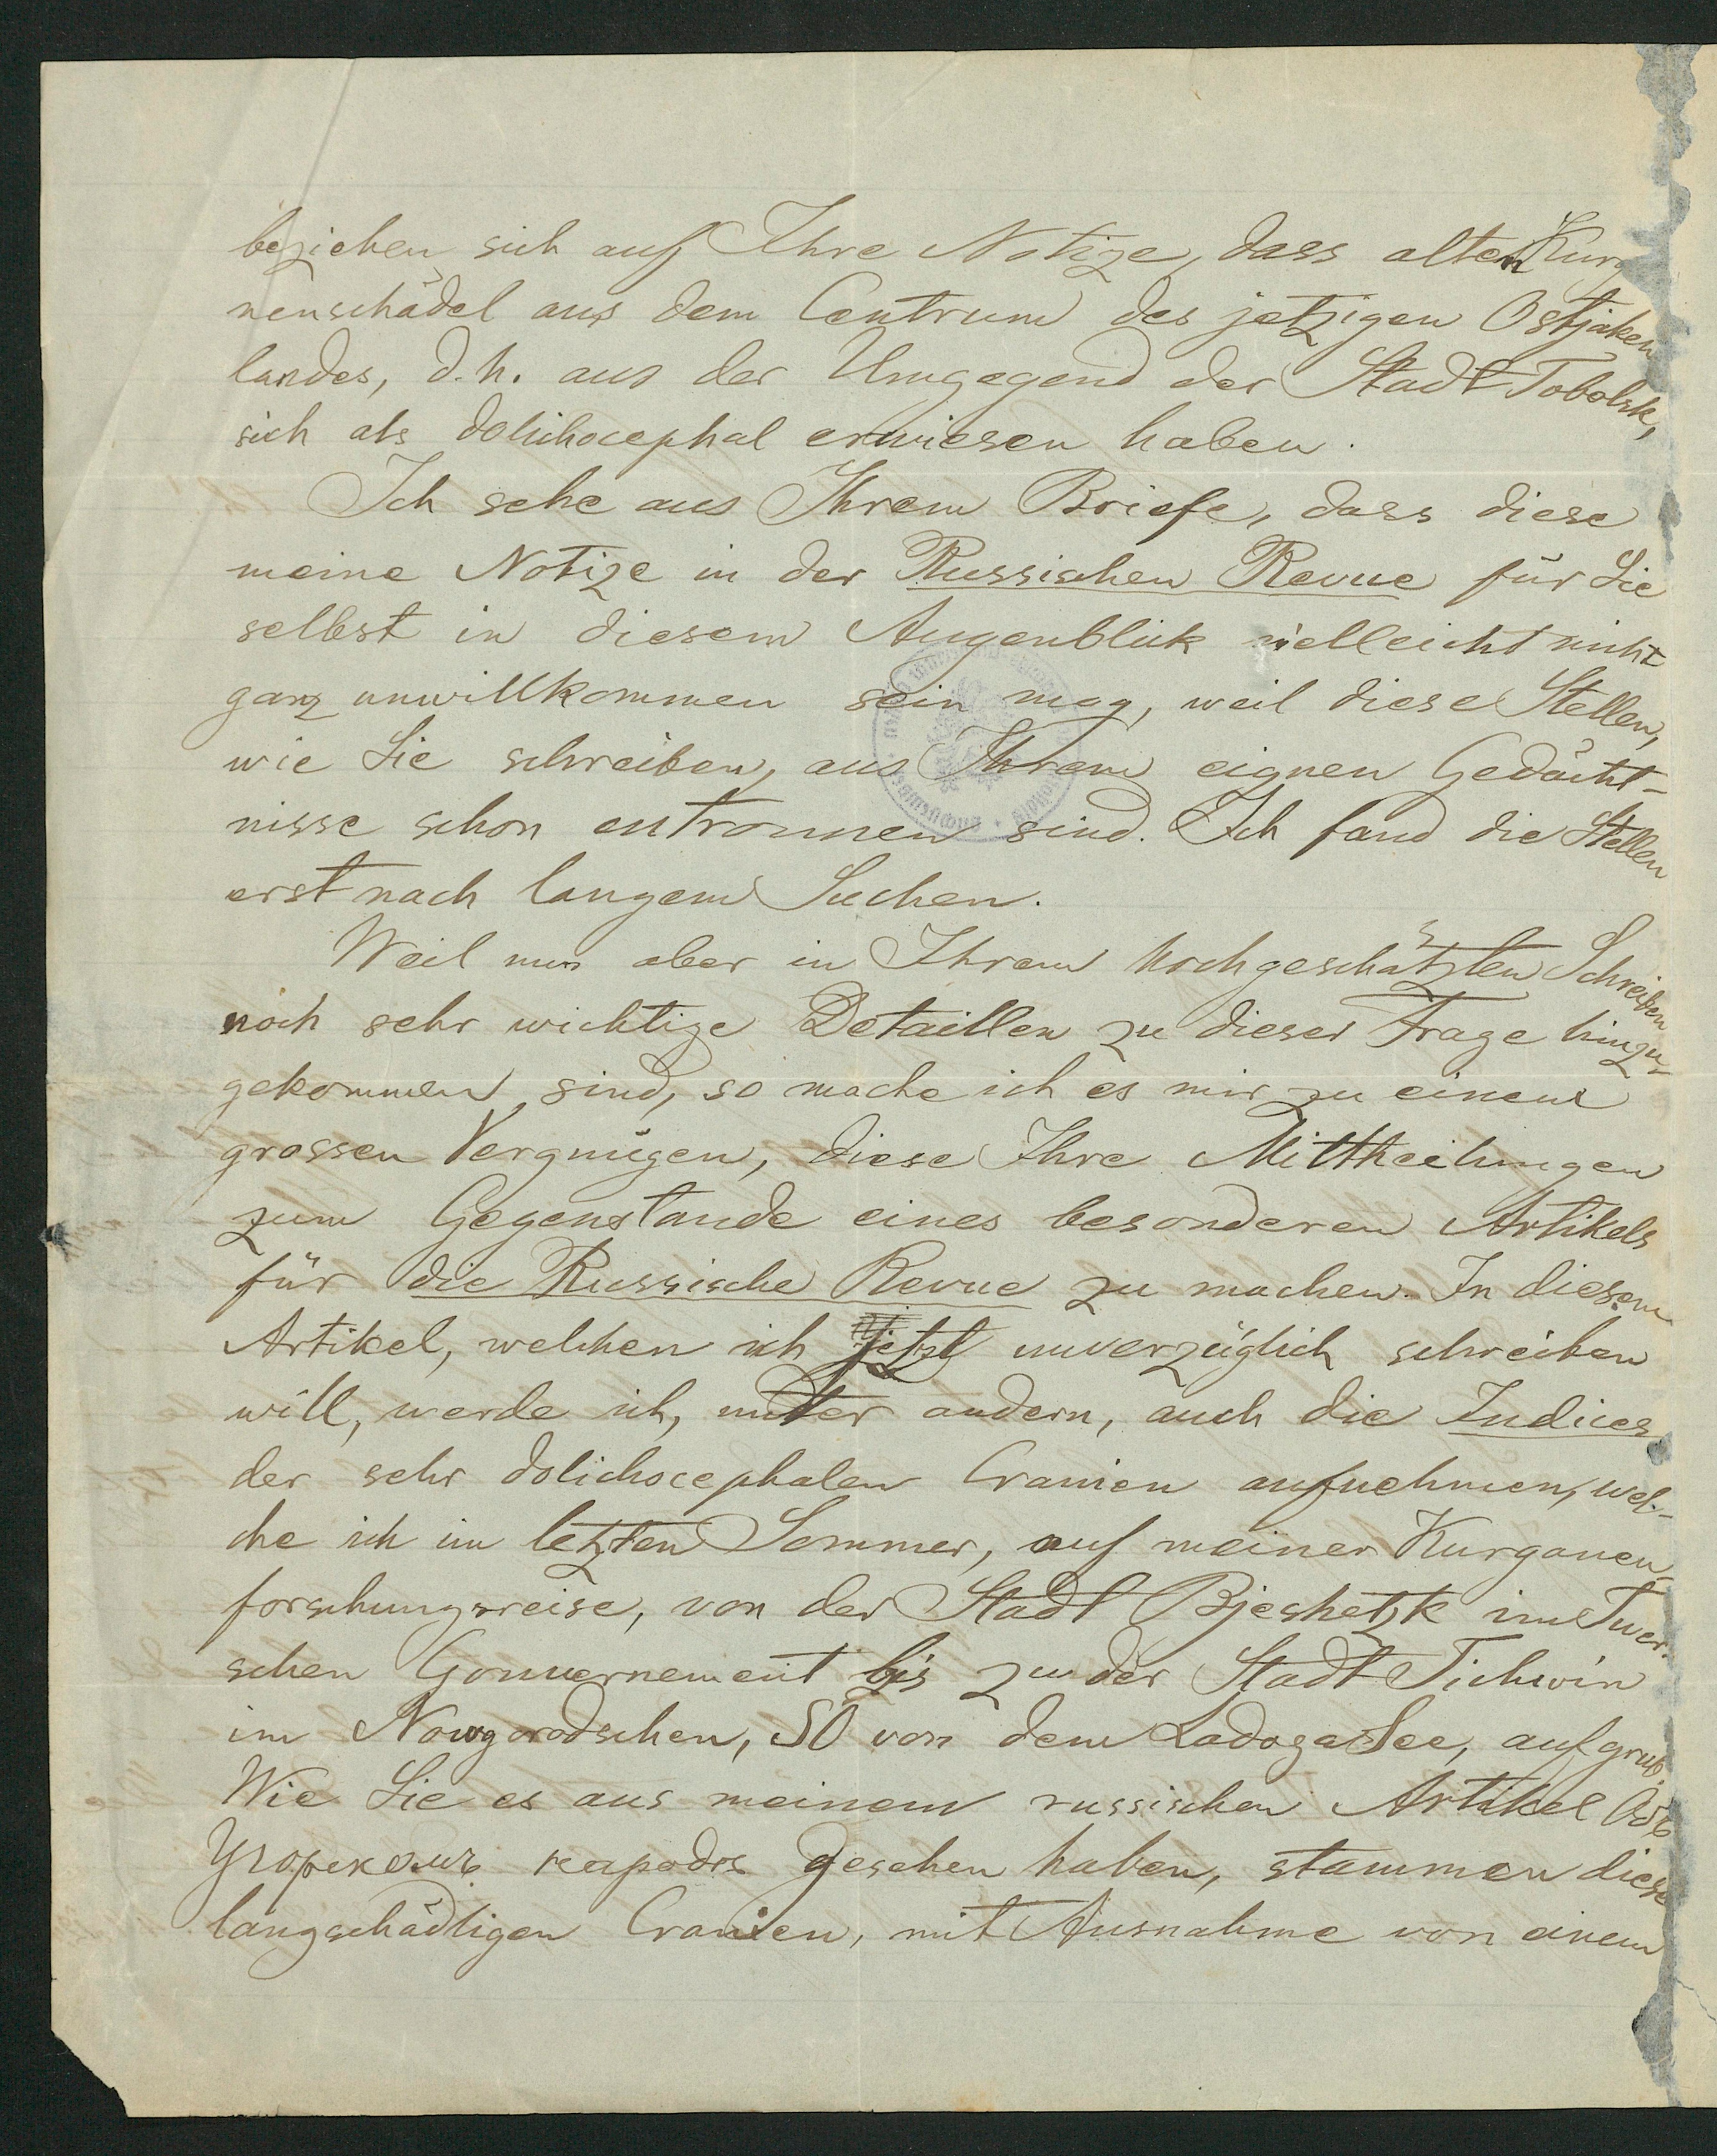 beziehen sich auf Ihre Notize, dass alten Kurga
nenschädel aus dem Centrum des jetzigen Ostjaken
landes, d.h. aus der Umgegend der Stadt Tobolsk,
sich als dolichocephal erwiesen haben.
Ich sehe aus Ihrem Briefe, dass diese
meine Notize in der Russischen Revue für Sie
selbst in diesem Augenblick vielleicht nicht
ganz unwillkommen sein mag, weil diese Stellen,
wie Sie schreiben, aus Ihrem eignen Gedächt-
nisse schon entronnen sind. Ich fand die Stellen
erst nach langem Suchen.
Weil nun aber in Ihrem hochgeschätzten Schreiben
noch sehr wichtige Detaillen zu dieser Frage hinzu-
gekommen sind, so mache ich es mir zu einem
grossen Vergnügen, diese Ihre Mittheilungen
zum Gegenstande eines besonderen Artikels
für die Russische Revue zu machen. In diesem
Artikel, welchen ich jetzt unverzüglich schreiben
will, werde ich, unter andern, auch die Indices
der sehr dolichocephalen Cranien aufnehmen, wel-
che ich im letzten Sommer, auf meiner Kurganen-
forschungsreise, von der Stadt Bjeshetzk im Twer-
schen Gouvernement bis zu der Stadt Tichwin
im Nowgorodschen, SO von dem Ladoga See, aufgrub.
Wie Sie es aus meinem russischen Artikel Объ
Угорскомъ народѣ gesehen haben, stammen diese
langschädligen Cranien, mit Ausnahme von einem